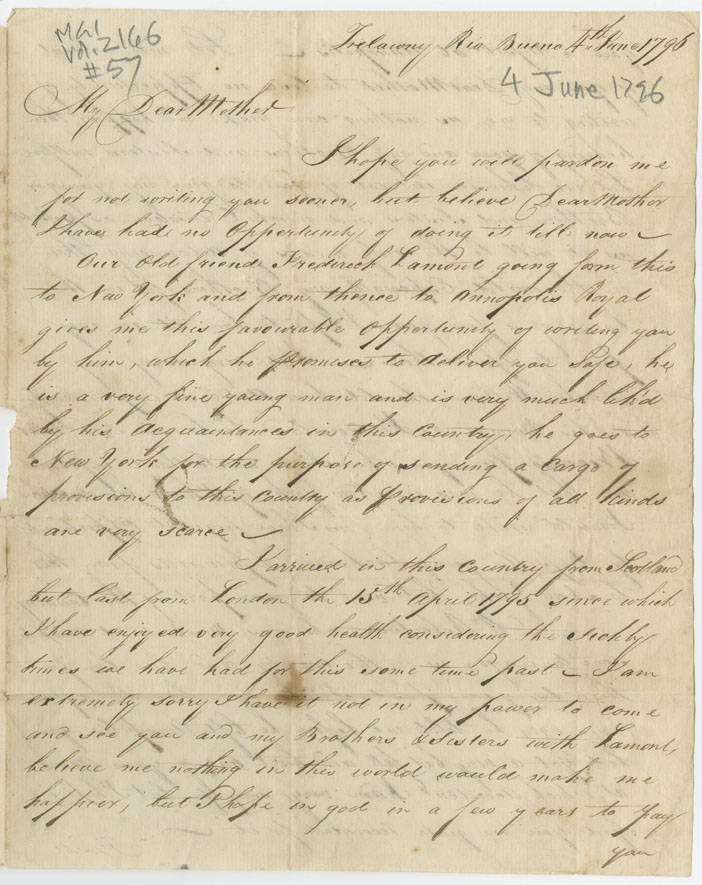 MG1
Vol. 2166
#57
Trelawny Rio Bueno 4th June 1796
4 June 1796
My Dear Mother
I hope you will pardon me
for not writing you sooner, but believe Dear Mother
I have had no Opportunity of doing it till now
Our Old friend Frederick Lamont going form this
to New York and from thence to Annopolis Royal
gives me this favourable Opportunity of writing you
by him, which he promises to deliver you Safe, he
is a very fine young man and is very much likd
by his Acquaintances in this Country, he goes to
New York for the purpose of sending a Cargo of
provisions to this Country as Provisions of all kinds
are very scarce
I arrived in this Country from Scotland
but last from London the 15th April 1795 since which
I have enjoyed very good health considering the sickly
times we have had for this some time past – I am
extremely sorry I have it not in my power to come
and see you and my Brothers & Sisters with Lamont,
believe me nothing in this world would make me
happier, but I hope in god in a few years to pay
you